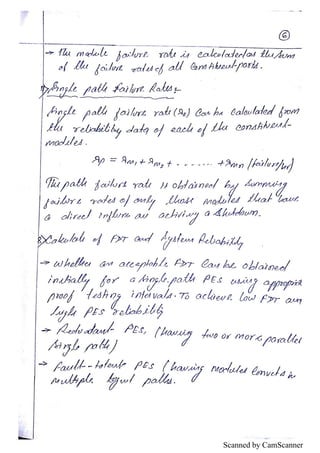 6
→ The module failure rate is calculated as the sum
of the failure rates of all constituent parts.
Single path failure Rates
Single path failure rate (λp) can be calculated from
the reliability data of each of the constituent
modules.
λp = λm1 + λm2 + - - - - - - + λmn (failure/hr)
The path failure rate is obtained by summing
failure rates of only those modules that have
a direct influence achieving a shutdown.
Calculate of FDT and System Reliability
→ whether an acceptable FDT can be obtained
initially for a single path PES using appropriate
proof testing intervals. To achieve low FDT and
high PES reliability
→ Redundant PES, (having two or more parallel
single path)
→ Fault-tolerant PES (having modules connected in
multiple layout paths.
Scanned by CamScanner